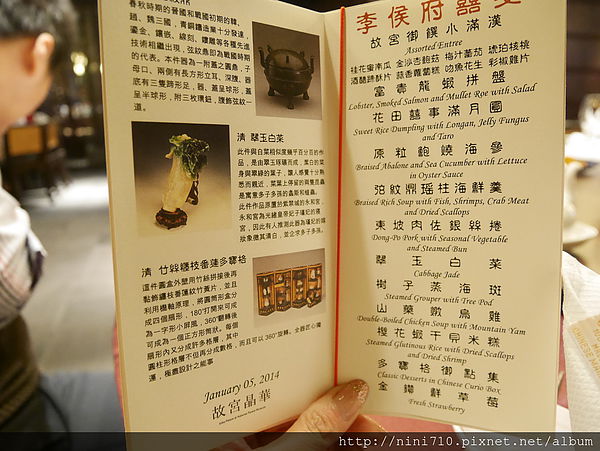 春秋時期的晉國和戰國初期的韓、
趙、魏三國，青銅鑄造業十分發達，
鎏金、鑲嵌、線刻、鏤雕等各種先進
技術相繼出現，弦紋鼎即為戰國時期
的代表。本件器為一附蓋之圓鼎，子
母口、兩側有長方形立耳，深腹，器
底有三隻蹄形足，器、蓋呈球形，蓋
呈半球形，附三枚環鈕，腹飾弦紋一
道。
清 翠玉白菜
此件與白菜相似度幾乎百分百的作
品，是由翠玉琢碾而成，菜白的菜
身與翠綠的葉子，讓人感覺十分熟
悉而親近，菜葉上停留的兩隻昆蟲
是寓意多子多孫的螽斯和蝗蟲。
此件作品原置於紫禁城的永和宮，
永和宮為光緒皇帝妃子瑾妃的寢
宮，因此有人推測此器為瑾妃的嫁
妝象徵其清白，並企求多子多孫。
清 竹絲纏枝番蓮多寶格
這件小圓盒外壁用竹絲拼接後再
黏飾纏枝番蓮紋竹黃片，並且
利用樞軸原理，將圓筒形盒分
成四個扇形，180°打開來可成
為一字形小屏風，360°翻轉後
可成為一個正方形筒狀。每個
扇形內又分成許多格層，其中
圓柱形格層不但再分成數格，而且可以360°旋轉，全器匠心獨
運，極盡設計之能事
January 05, 2014
故宮晶華
李侯府囍宴
故宮御饌小滿漢
Assorted Entree
桂花蜜南瓜 金沙杏鮑菇 梅汁蕃茄 琥珀核桃
酒醋蹄酥片 蒜香蘿蔔糕 吻魚花生 彩椒雞片
富壽龍蝦拼盤
Lobster, Smoked Salmon and Mullet Roe with Salad
花田囍事滿月圓
Sweet Rice Dumpling with Longan, Jelly Fungus
and Taro
原粒鮑嬈海參
Braised Abalone and Sea Cucumber with Lettuce
in Oyster Sauce
弦紋鼎瑤柱海鮮羹
Braised Rich Soup with Fish, Shrimps, Crab Meat
and Dried Scallops
東坡肉佐銀絲捲
Dong-Po Pork with Seasonal Vegetable
and Steamed Bun
翠玉白菜
Cabbage Jade
樹子蒸海斑
Steamed Grouper with Tree Pod
山藥燉烏雞
Double-Boiled Chicken Soup with Mountain Yam
櫻花蝦干貝米糕
Steamed Glutinous Rice with Dried Scallops
and Dried Shrimp
多寶格御點集
Classic Desserts in Chinese Curio Box
金鑼鮮草莓
Fresh Strawberry
http://nini710.pixnet.net/album